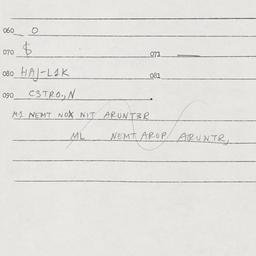 060 0
070 $ 071 —
080 HAJ-L1K 081
090 C3TRO., N
M1 NEMT NOX NIT ARUNTBR
ML NEMT AROP ARUNTR,